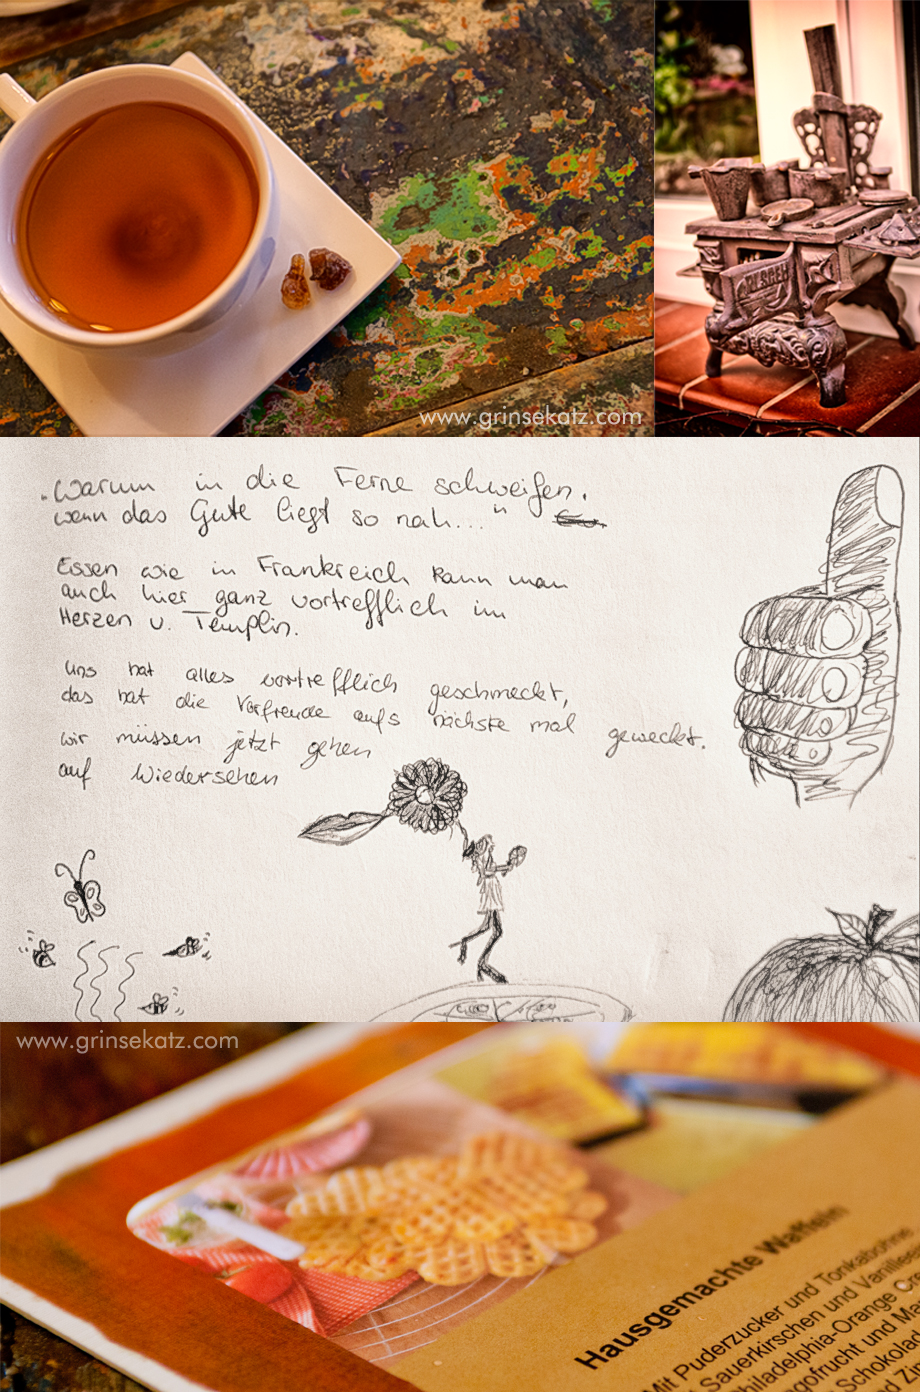 www.grinsekatz.com
"Warum in die Ferne schweifen,
wenn das Gute liegt so nah..."
Essen wie in Frankreich kann man
auch hier ganz vortrefflich im
Herzen v. Templin.
Uns hat alles vortrefflich geschmeckt,
das hat die Vorfreude aufs nächste mal geweckt.
wir müssen jetzt gehen
auf Wiedersehen
www.grinsekatz.com
Hausgemachte Waffeln
Mit Puderzucker und Tonkabohne
Sauerkirschen und Vanillee
iladelphia-Orange Cr
gofrucht und Ma
Schokolad
d Zi